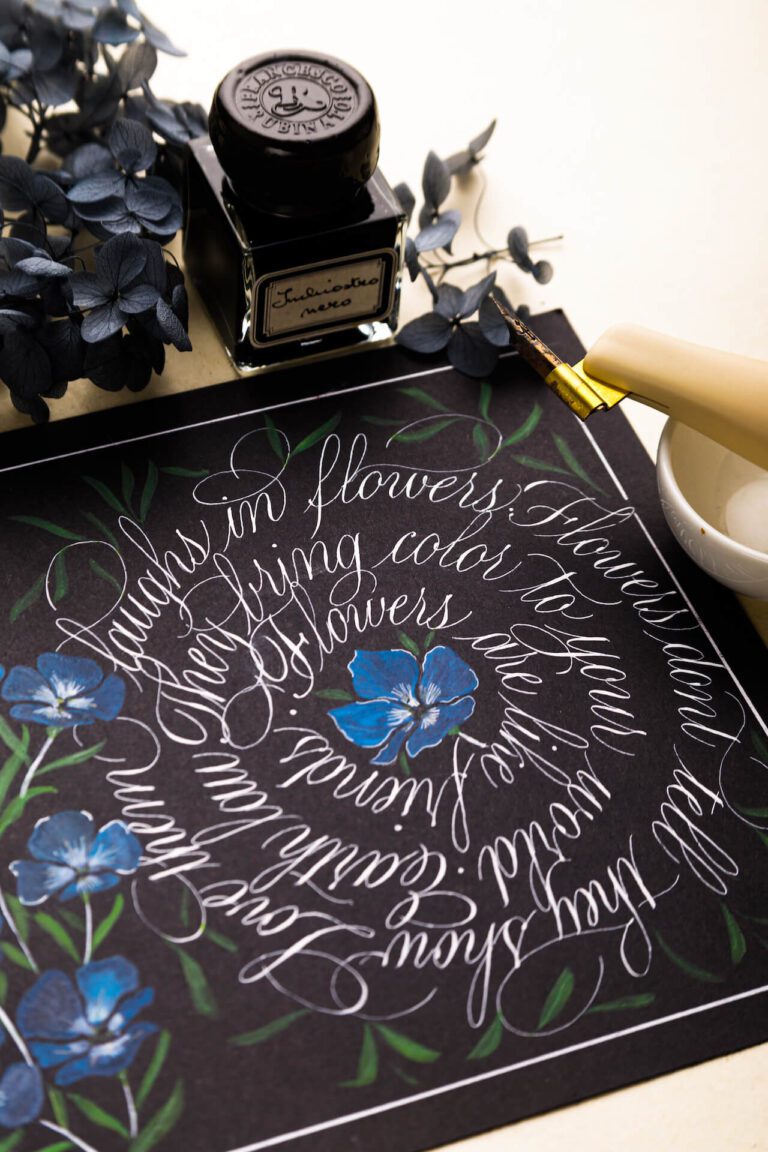 FRANCESCO RUBINATO
Inchiostro
nero
Flowers are like friends.
They bring color to your world. Earth
laughs in flowers. Flowers dont tell they show. Love them